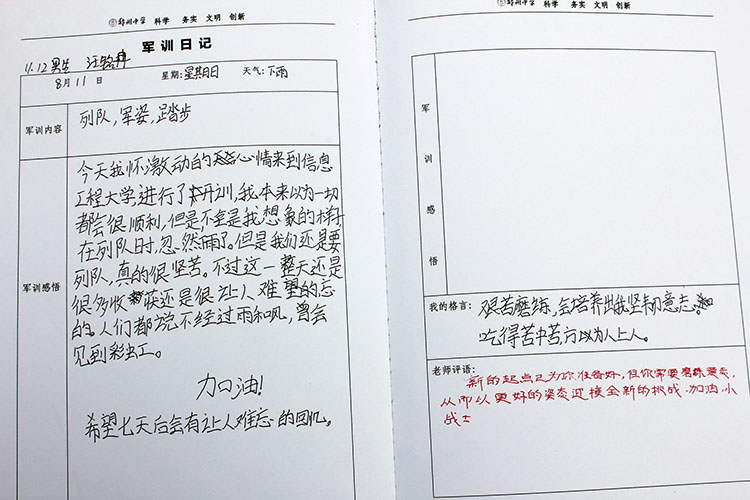 郑州中学 科学 务实 文明 创新
军训日记
11.12男生 汪铭科
8月11日 星期:星期日 天气:下雨
军训内容
列队,军姿,踏步
军训感悟
今天我怀激动的心情来到信息
工程大学,进行了军训,我本来以为一切
都会很顺利,但是不全是我想象的样子
在列队时,忽然雨了。但是我们还是要
列队,真的很坚苦。不过这一整天还是
很多收获还是很让人难望的忘
的。人们都说不经过雨和风,曾会
见到彩虹。
加油!
希望七天后会有让人难忘的回忆。
郑州中学 科学 务实 文明 创新
军训感悟
我的格言:
艰苦磨练,会培养出我坚韧意志。
吃得苦中苦方以为人上人。
老师评语:
新的起点已为你准备好,但你需要磨练意志,
从而以更好的姿态迎接全新的挑战.加油,小
战士